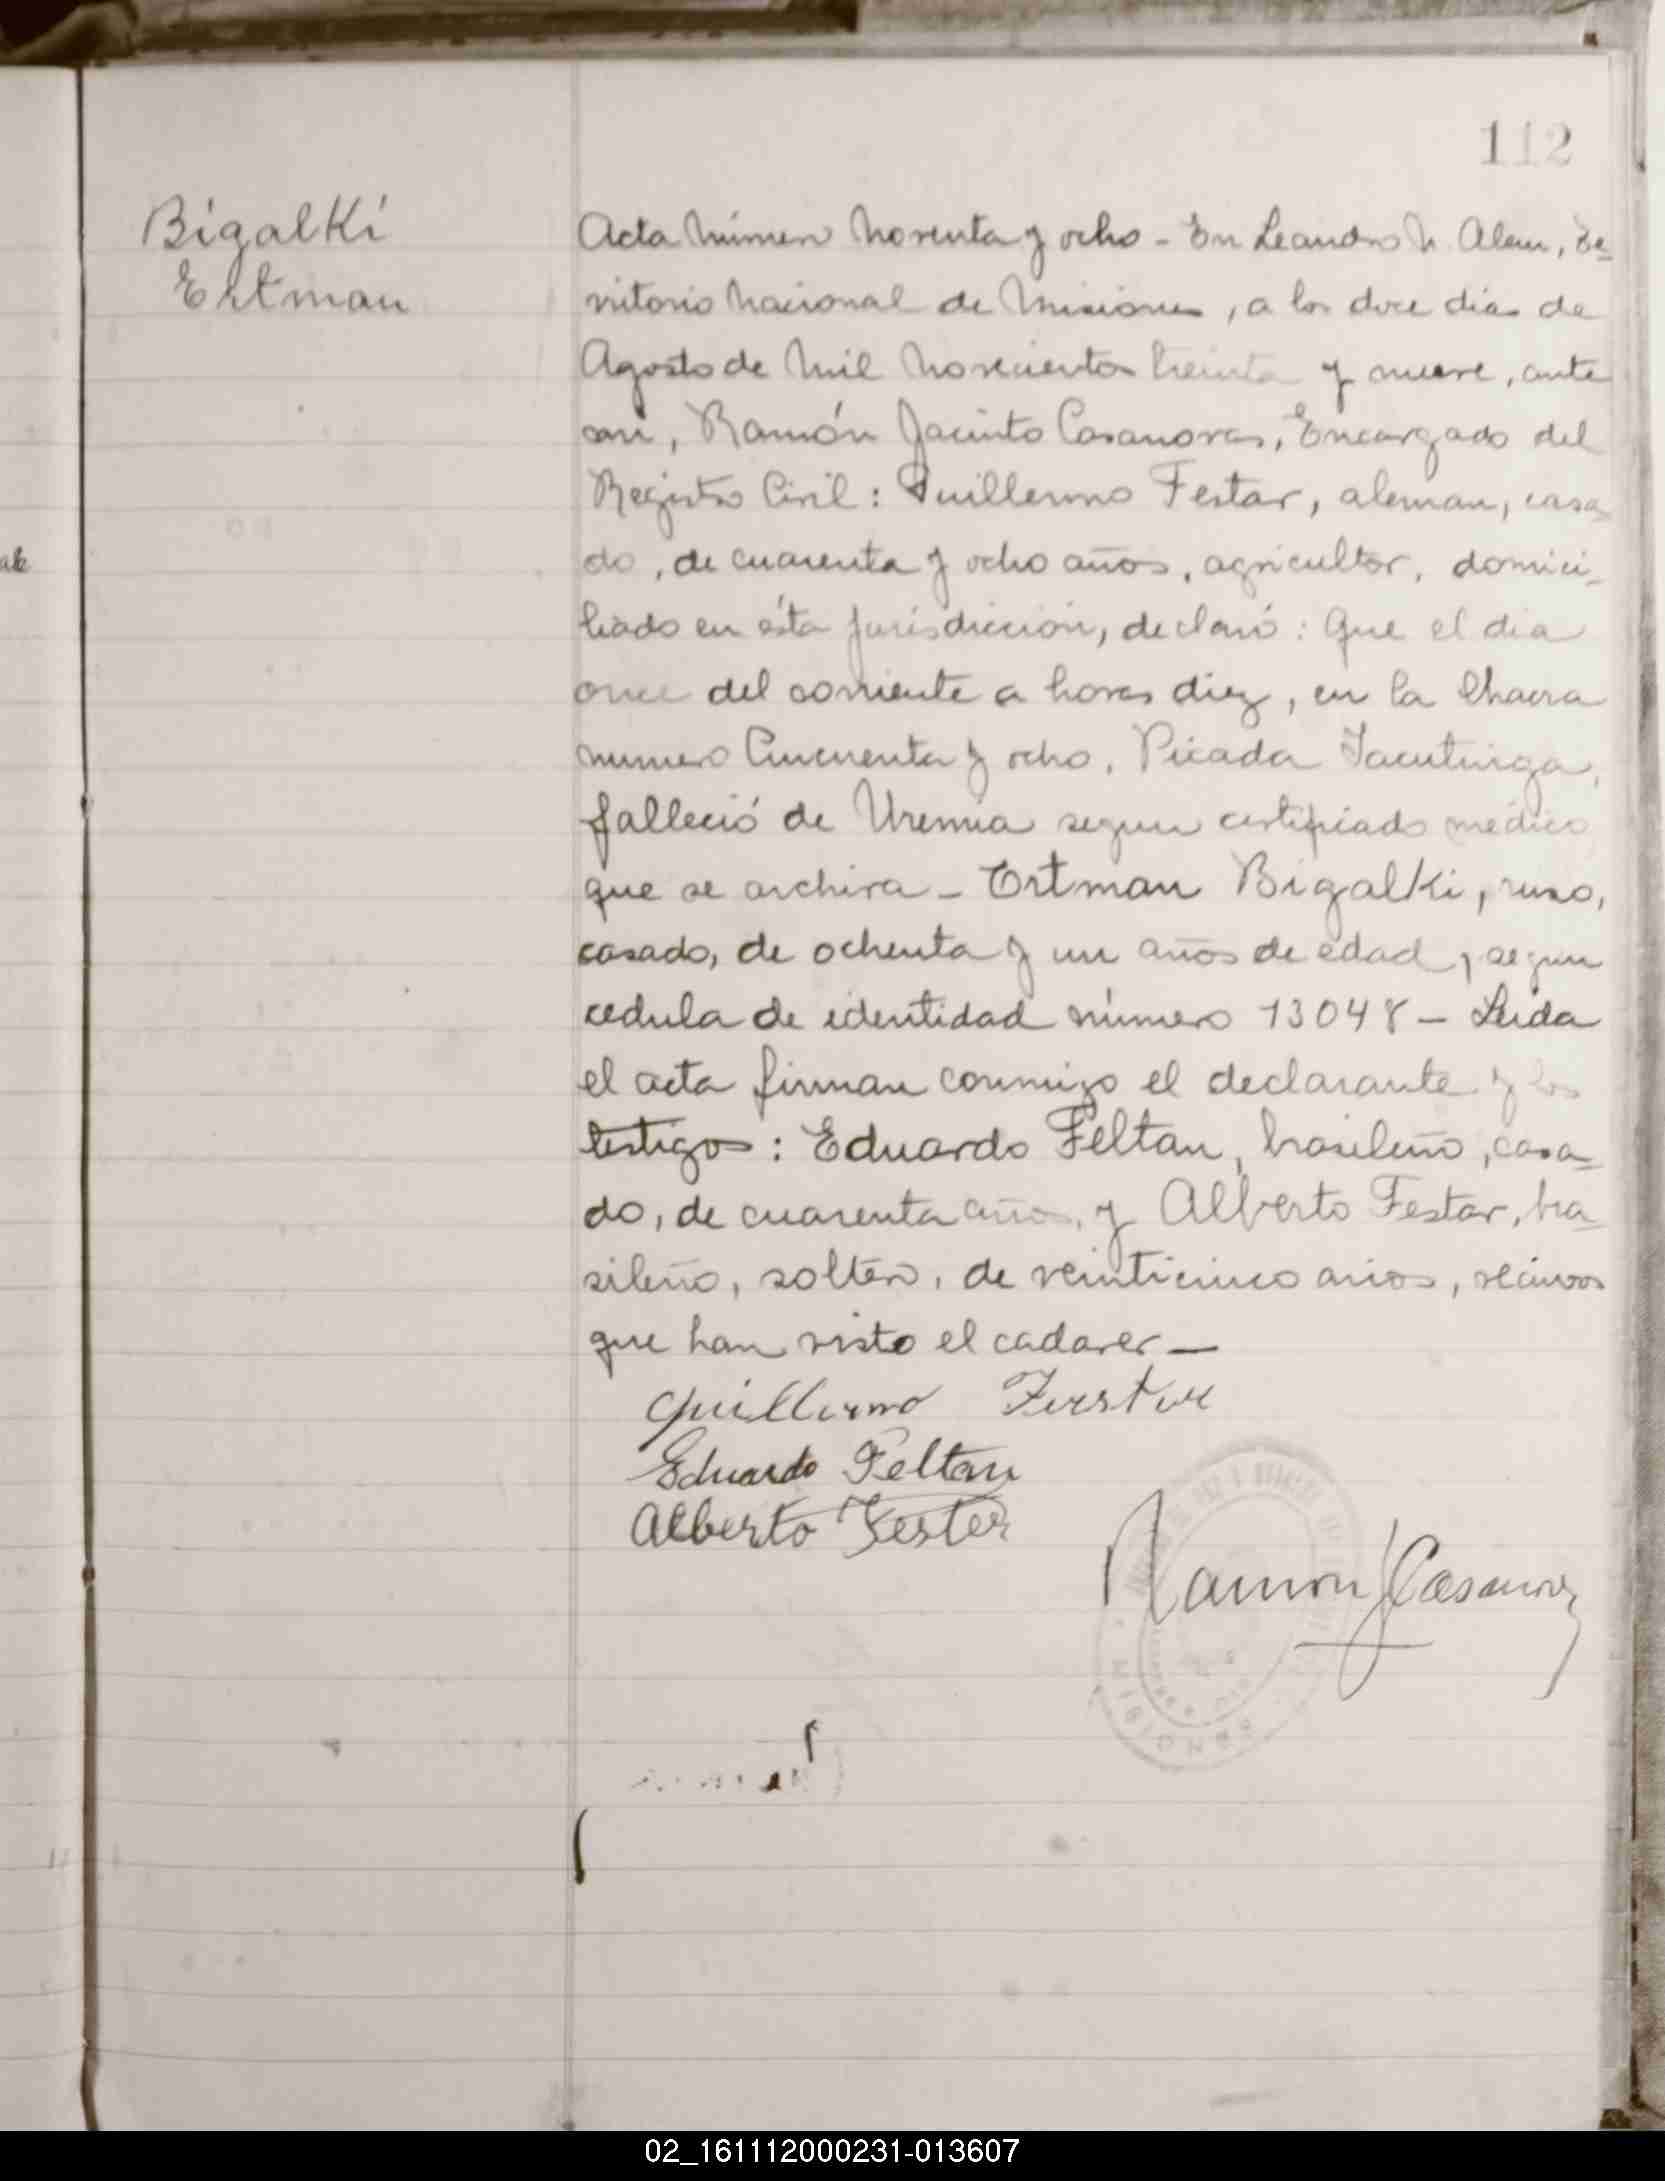 112
Bigalki
Ertman
Acta número noventa y ocho - En Leandro N. Alem, Te-
rritorio Nacional de Misiones, a los doce dias de
Agosto de mil novecientos treinta y nueve, ante
mi, Ramón Jacinto Casanovas, Encargado del
Registro Civil: Guillermo Festar, aleman, casa-
do, de cuarenta y ocho años, agricultor, domici-
liado en ésta jurisdicción, declaró: Que el dia
once del corriente a horas diez, en la Chacra
numero Cincuenta y ocho, Picada Yacutinga,
falleció de Uremia segun certificado médico
que se archiva - Ertman Bigalki, ruso,
casado, de ochenta y un años de edad, segun
cedula de identidad número 13048 - Leida
el acta firman conmigo el declarante y los
testigos: Eduardo Feltan, brasileño, casa-
do, de cuarenta años, y Alberto Festar, bra-
sileño, soltero, de veinticinco años, vecinos
que han visto el cadaver -
Guillermo Ferster
Eduardo Feltan
Alberto Fester
Ramon J Casanovas
MISIONES
02_161112000231-013607